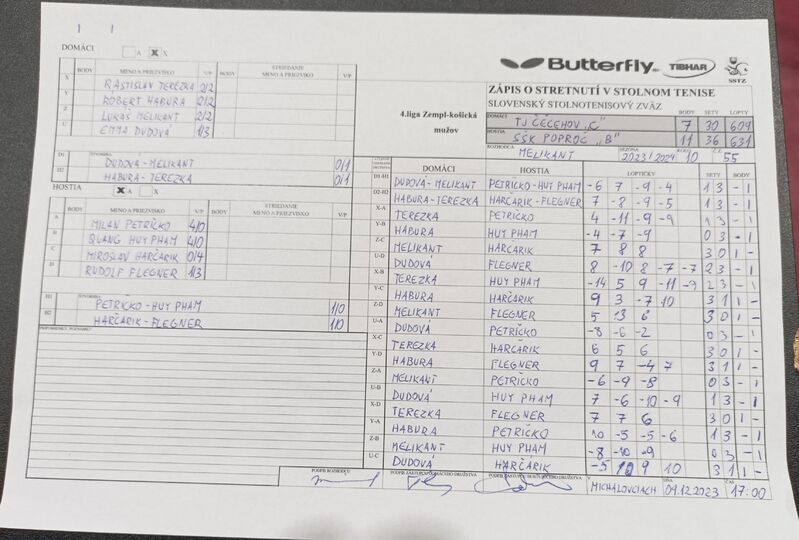 Butterfly TIBHAR SSTZ
DOMÁCI A X X
BODY MENO A PRIEZVISKO V/P BODY STRIEDANIE MENO A PRIEZVISKO V/P
X RASTISLAV TEREZKA 2/2
Y RÓBERT HABURA 2/2
Z LUKÁŠ MELIKANT 2/2
U EMMA DUDOVÁ 1/3
D1 ŠTVORHRA DUDOVÁ-MELIKANT 0/1
D2 HABURA-TEREZKA 0/1
HOSTIA X A X
BODY MENO A PRIEZVISKO V/P BODY STRIEDANIE MENO A PRIEZVISKO V/P
A MILAN PETRIČKO 4/0
B QUANG HUY PHAM 4/0
C MIROSLAV HARČARIK 0/4
D RUDOLF FLEGNER 1/3
H1 ŠTVORHRA PETRIČKO-HUY PHAM 1/0
H2 HARČARIK-FLEGNER 1/0
PRIPOMIENKY, POZNÁMKY
4.liga Zempl-košická
mužov
ZÁPIS O STRETNUTÍ V STOLNOM TENISE
SLOVENSKÝ STOLNOTENISOVÝ ZVÄZ
DOMÁCI TJ ČEČEHOV „C" BODY 7 SETY 30 LOPTY 609
HOSTIA SŠK POPROČ „B" 11 36 631
ROZHODCA MELIKANT SEZÓNA 2023/2024 KOLO 10 Č.Z. 55
DOMÁCI HOSTIA LOPTIČKY SETY BODY
D1-H1 DUDOVÁ-MELIKANT PETRIČKO-HUY PHAM -6 7 -9 -4 1 3 - 1
D2-H2 HABURA-TEREZKA HARČARIK-FLEGNER 7 -8 -9 -5 1 3 - 1
X-A TEREZKA PETRIČKO 4 -11 -9 -9 1 3 - 1
Y-B HABURA HUY PHAM -4 -7 -9 0 3 - 1
Z-C MELIKANT HARČARIK 7 8 8 3 0 1 -
U-D DUDOVÁ FLEGNER 8 -10 8 -7 -7 2 3 - 1
X-B TEREZKA HUY PHAM -14 5 9 -11 -7 2 3 - 1
Y-C HABURA HARČARIK 9 3 -7 10 3 1 1 -
Z-D MELIKANT FLEGNER 5 13 6 3 0 1 -
U-A DUDOVÁ PETRIČKO -8 -6 -2 0 3 - 1
X-C TEREZKA HARČARIK 6 5 6 3 0 1 -
Y-D HABURA FLEGNER 9 7 -4 7 3 1 1 -
Z-A MELIKANT PETRIČKO -6 -9 -8 0 3 - 1
U-B DUDOVÁ HUY PHAM 7 -6 -10 -9 1 3 - 1
X-D TEREZKA FLEGNER 7 7 6 3 0 1 -
Y-A HABURA PETRIČKO 10 -5 -5 -6 1 3 - 1
Z-B MELIKANT HUY PHAM -8 -10 -9 0 3 - 1
U-C DUDOVÁ HARČARIK -5 10 9 10 3 1 1 -
PODPIS ROZHODCU PODPIS ZÁSTUPCU DOMÁCEHO DRUŽSTVA PODPIS ZÁSTUPCU HOSŤUJÚCEHO DRUŽSTVA V MICHALOVCIACH DŇA 09.12.2023 ČAS 17:00